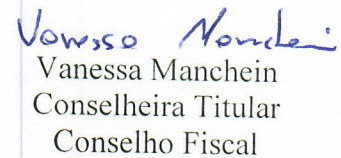 Vanessa Manchein
Vanessa Manchein
Conselheira Titular
Conselho Fiscal